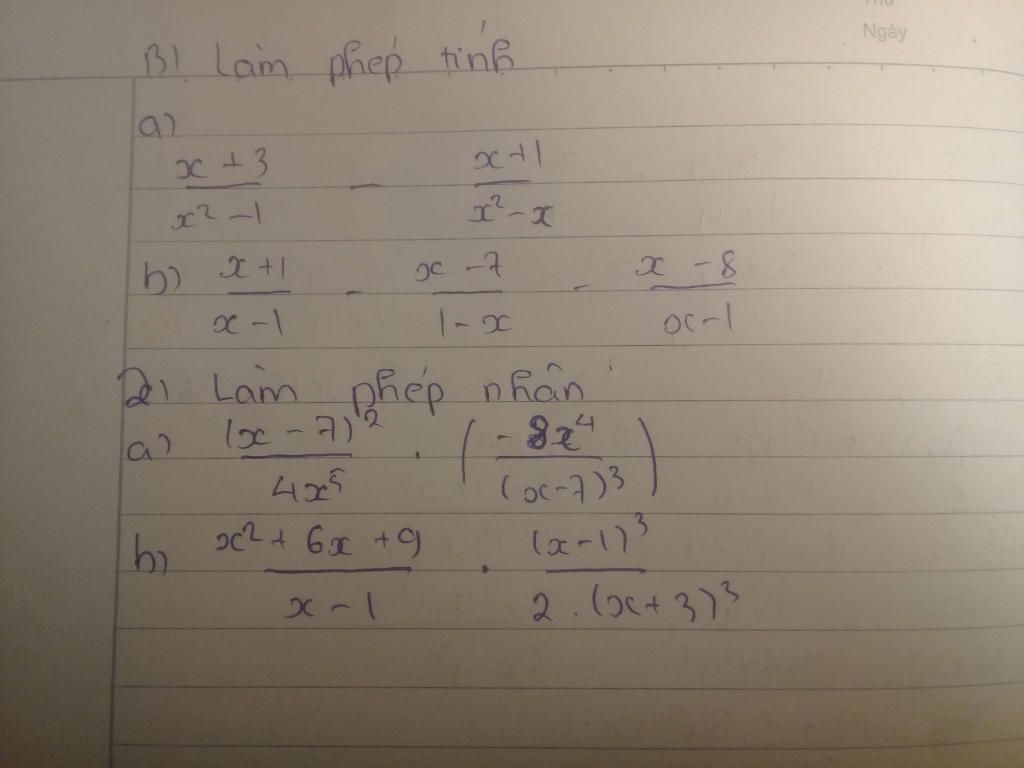 Thứ
Ngày
B1 Làm phép tính
a)
x + 3 / x² - 1 - x + 1 / x² - x
b) x + 1 / x - 1 - x - 7 / 1 - x - x - 8 / x - 1
2) Làm phép nhân
a) (x - 7)² / 4x⁵ . ( -8x⁴ / (x - 7)³ )
b) x² + 6x + 9 / x - 1 . (x - 1)³ / 2 . (x + 3)³